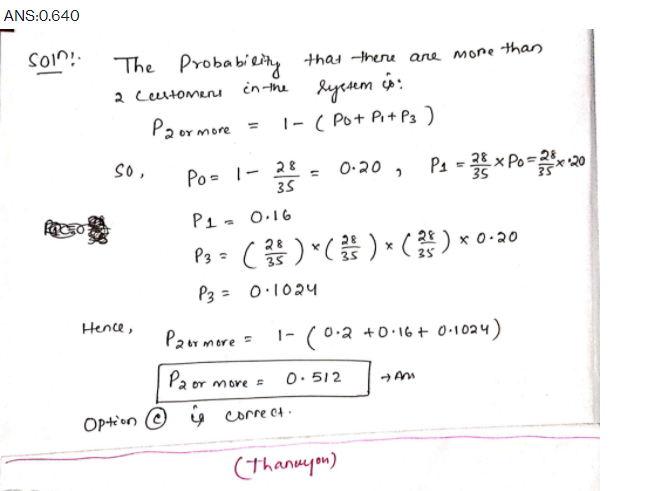 ANS:0.640
Soln:. The Probability that there are more than
2 customers in the system is:
P2 or more = 1 - ( P0 + P1 + P3 )
So, P0 = 1 - 28/35 = 0.20 , P1 = 28/35 × P0 = 28/35 × .20
P1 = 0.16
P3 = ( 28/35 ) × ( 28/35 ) × ( 28/35 ) × 0.20
P3 = 0.1024
Hence, P2 or more = 1 - ( 0.2 + 0.16 + 0.1024 )
P2 or more = 0.512 → Ans
Option (c) is correct.